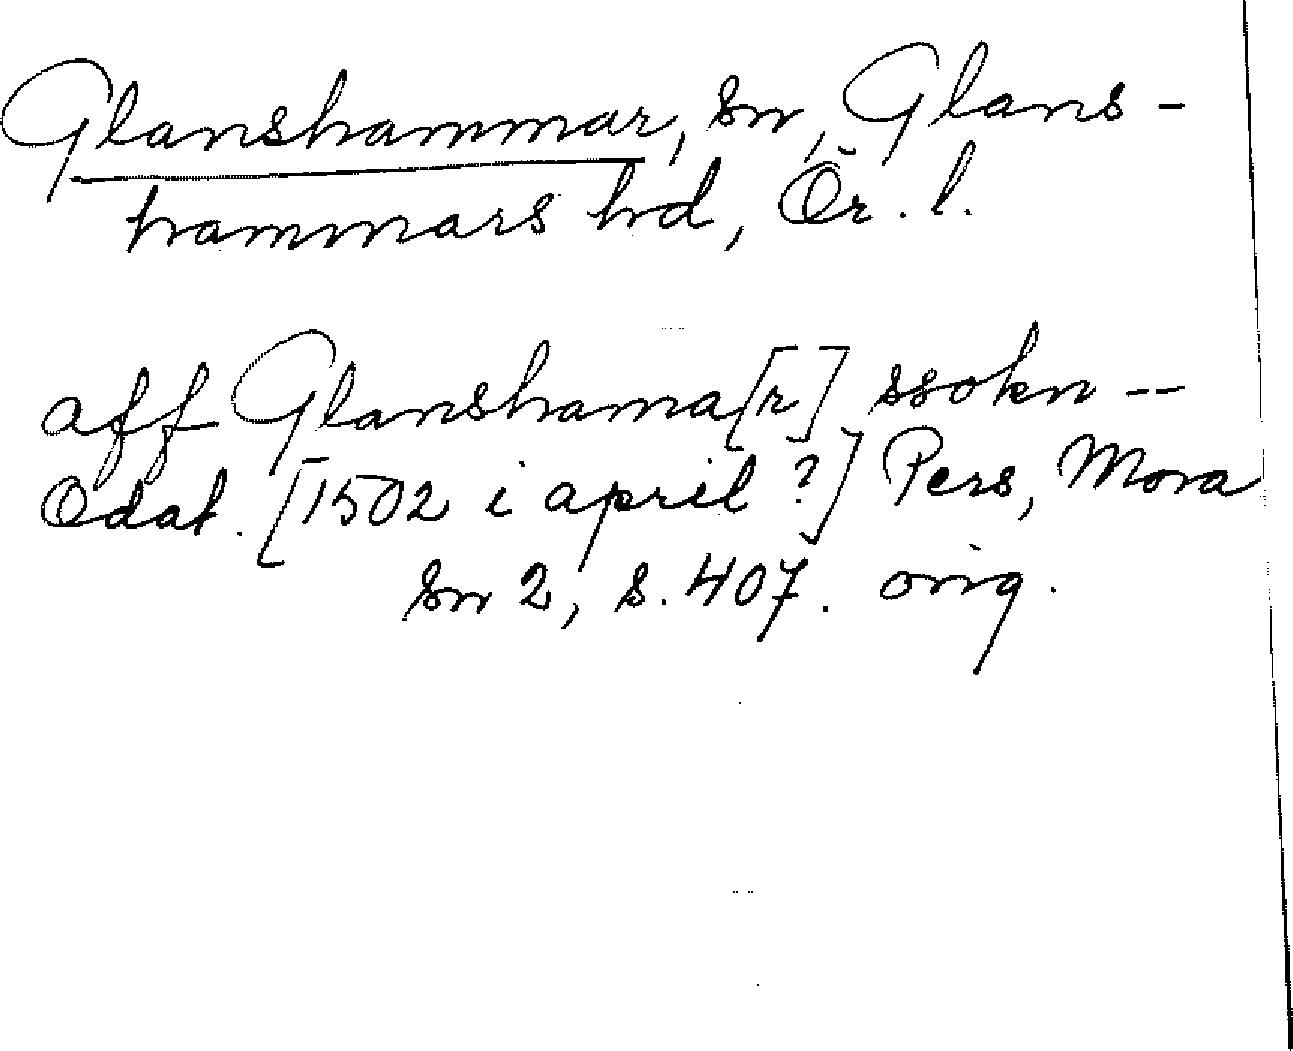 Glanshammar, sn, Glans-
hammars hd, Ör. l.
aff Glanshama[r] ssokn --
Odat. [1502 i april ?] Pers, Mora
sn 2, s. 407. orig.